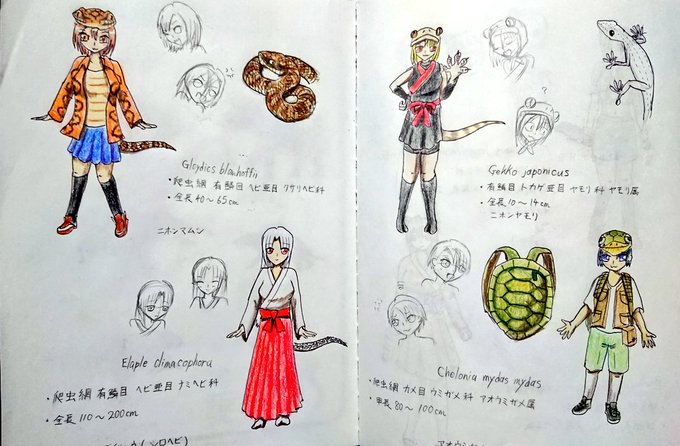 Gloydius blomhoffii
・爬虫綱 有鱗目 ヘビ亜目 クサリヘビ科
・全長 40～65cm
ニホンマムシ
Elaphe climacophora
・爬虫綱 有鱗目 ヘビ亜目 ナミヘビ科
・全長 110～200cm
Gekko japonicus
・有鱗目 トカゲ亜目 ヤモリ科 ヤモリ属
・全長 10～14cm
ニホンヤモリ
?
Chelonia mydas mydas
・爬虫綱 カメ目 ウミガメ科 アオウミガメ属
・甲長 80～100cm